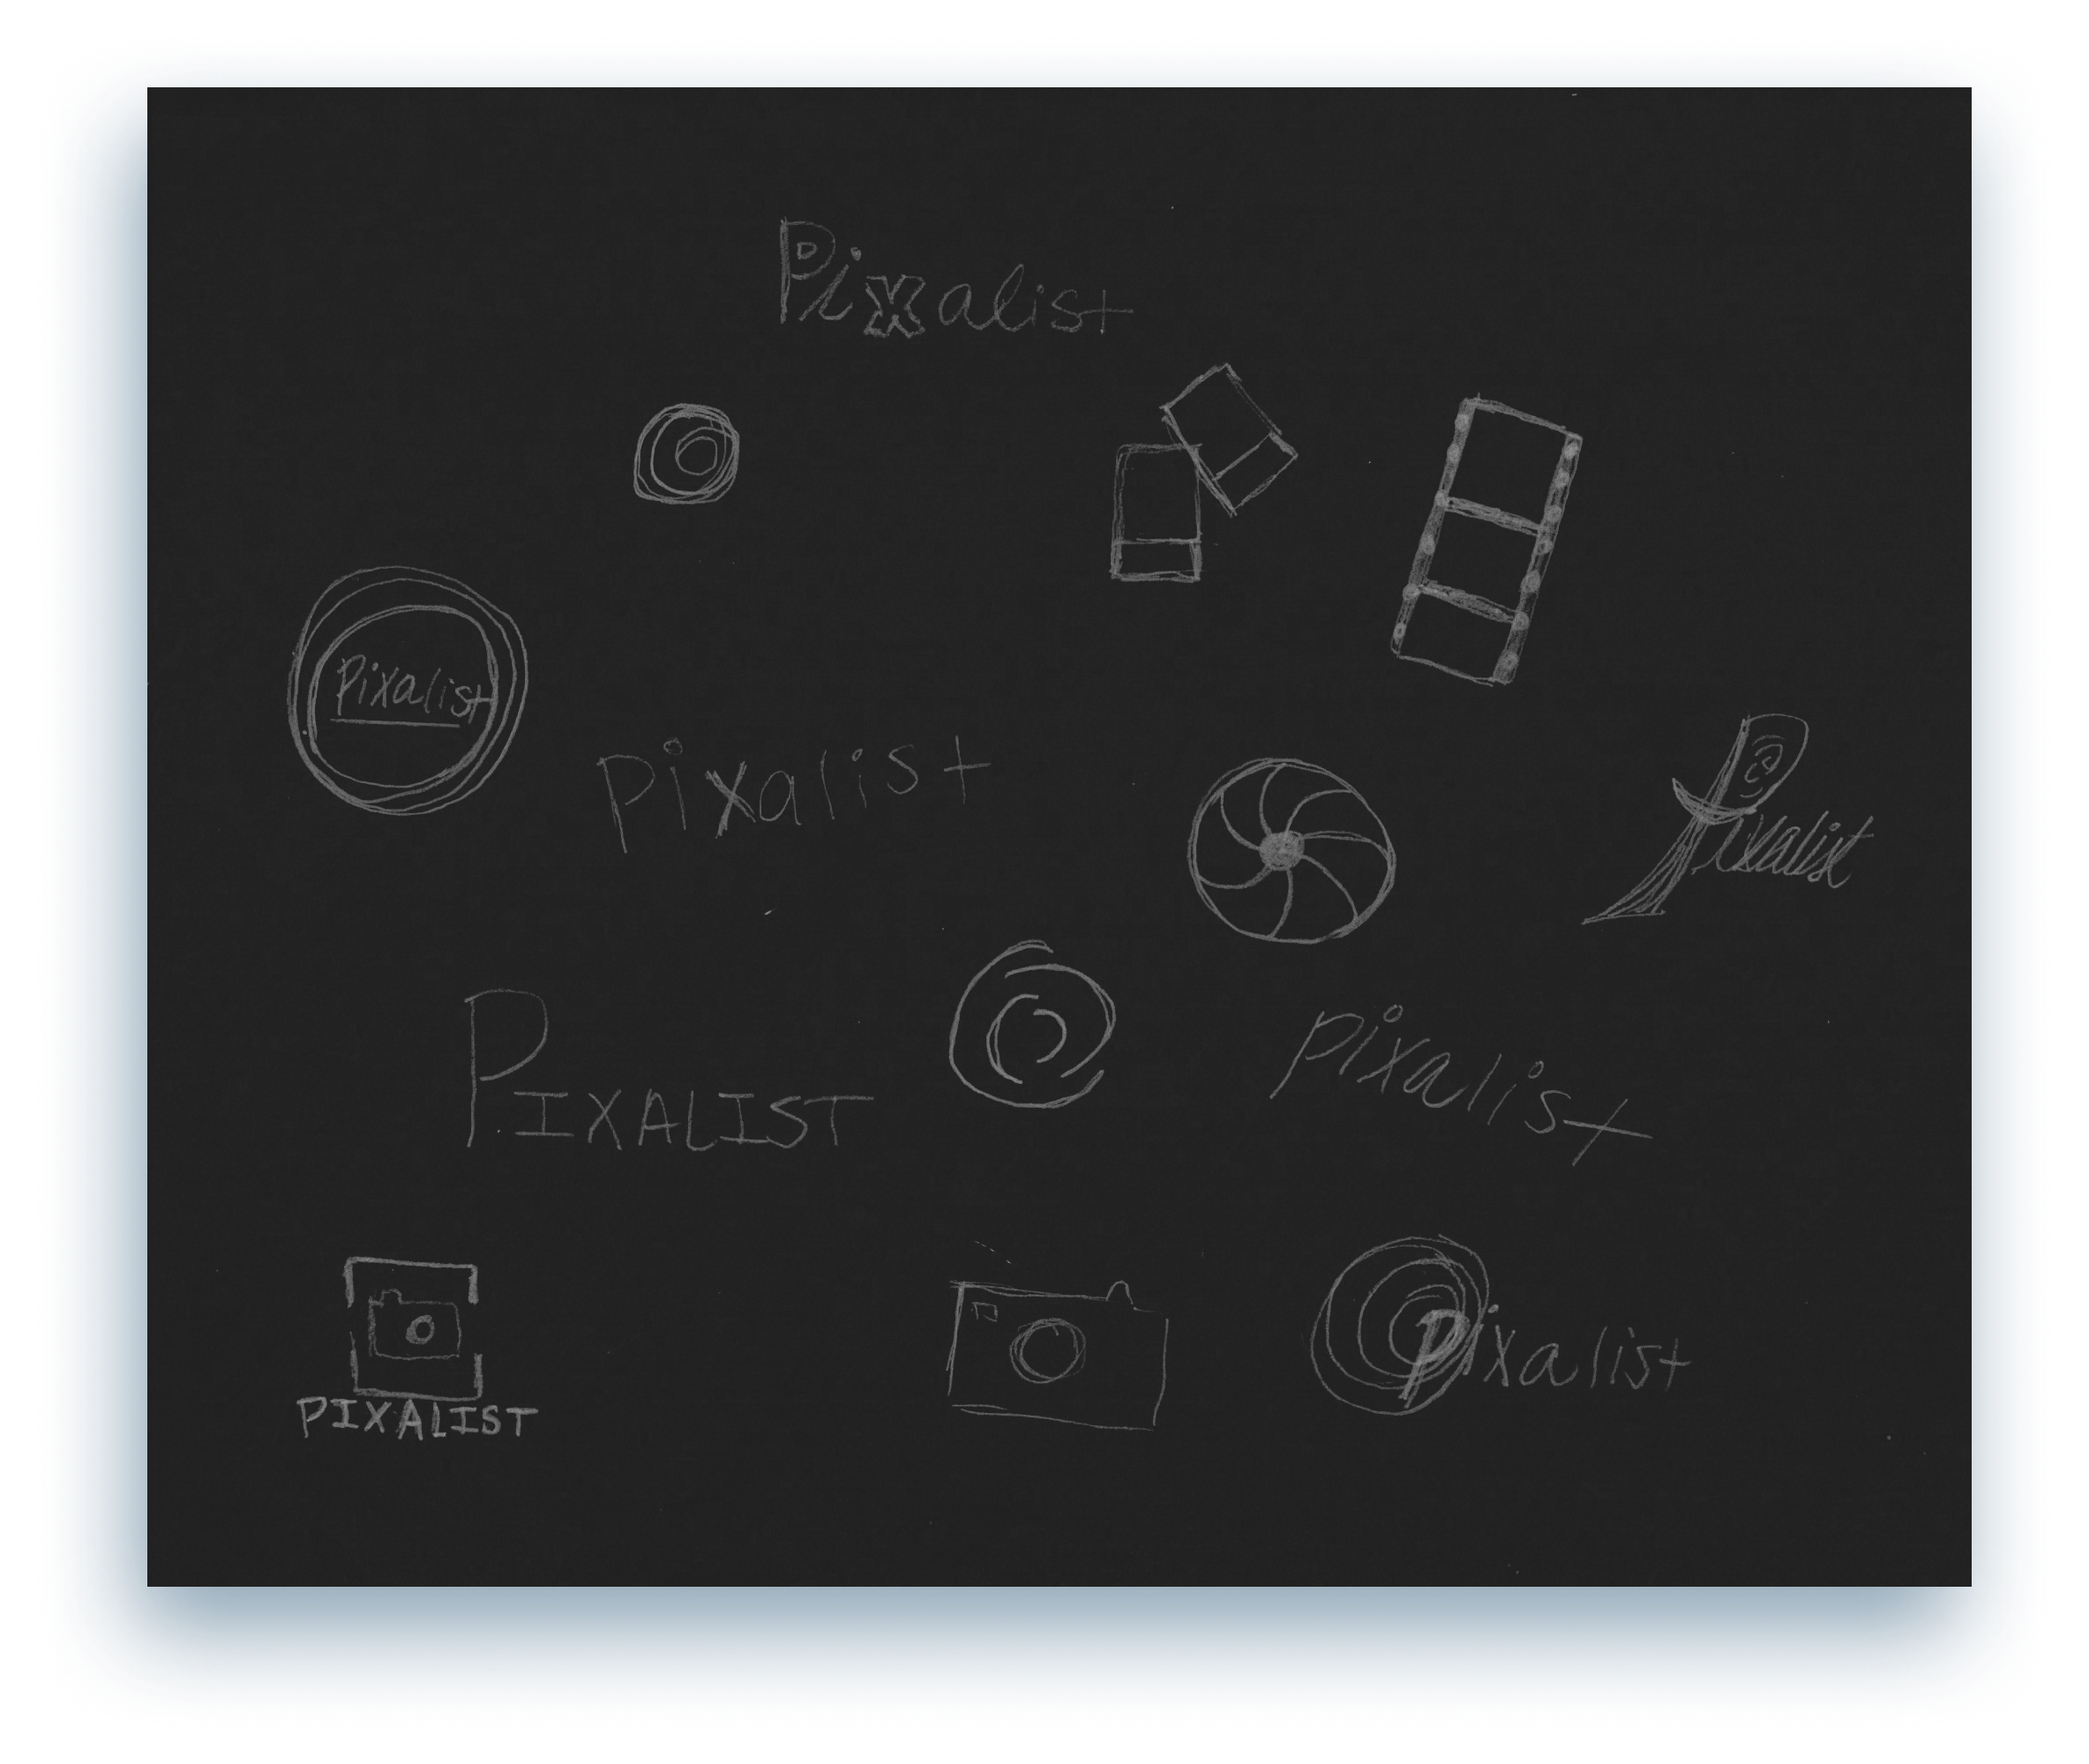 Pixalist
Pixalist
Pixalist
Pixalist
PIXALIST
Pixalist
PIXALIST
Pixalist